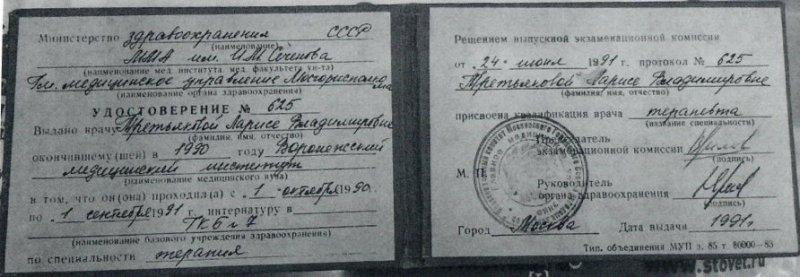 Министерство здравоохранения СССР
(наименование)
ММА им. И.М. Сеченова
(наименование мед. института мед. факультета ун-та)
Гл. медицинское управление Мосгорисполкома
(наименование органа здравоохранения)
УДОСТОВЕРЕНИЕ № 625
Выдано врачу Третьяковой Ларисе Владимировне
(фамилия, имя, отчество)
окончившему (шей) в 1990 году Воронежский
медицинский институт
(наименование медицинского вуза)
в том, что он(она) проходил(а) с 1 октября 1990.
по 1 сентября 1991 г. интернатуру в
ГКБ № 7
(наименование базового учреждения здравоохранения)
по специальности терапия
Решением выпускной экзаменационной комиссии
от 24 июня 1991 г. протокол № 625
Третьяковой Ларисе Владимировне
(фамилия, имя, отчество)
присвоена квалификация врача терапевта
(название специальности)
Председатель
экзаменационной комиссии
(подпись)
М. П.
Руководитель
органа здравоохранения
(подпись)
Город Москва Дата выдачи 1991г.
Тип. объединения МУП з. 85 т 80000—83
www.stovet.ru